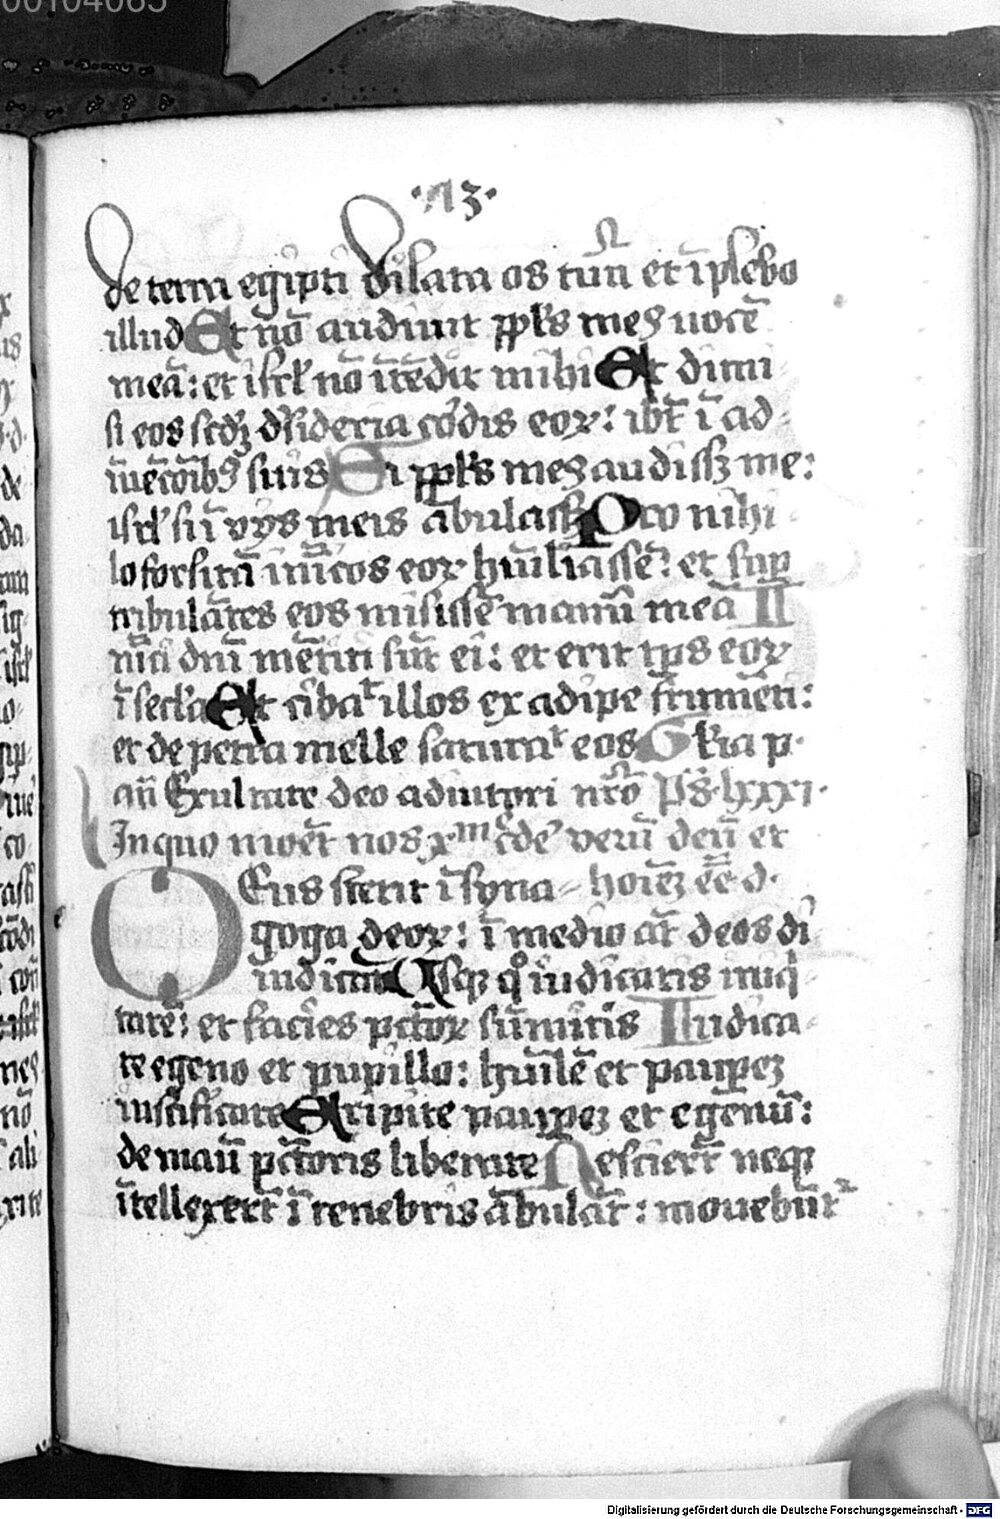 00104065
·A3·
de terra egipti dilata os tuū et īplebo
illud Et nō audiuit ppl's meꝰ uocē
meā: et isrl' nō ītēdit mihi Et dimi
si eos scdꝫ dſideria cordis eoꝝ: ibūt ī ad-
īuētōibꝰ suis Si ppl's meꝰ audissꝫ me:
isrl' si ī vijs meis ābulassꝫ Pro nihi-
lo forsitā inīcos eoꝝ huīliassē: et sup
tribulātes eos misissē manū meā In
nīci dnī mētiti sūt ei: et erit tp̄s eoꝝ
ī secl'a Et cibauit illos ex adipe frumēti:
et de petra melle saturauit eos Gl'ia p.
añ Exultate deo adiutori nrō Ps. lxxxi.
In quo mouēt nos xp̄m c̄dē verū deū et
DEus stetit ī syna- hoīeꝫ ēē d.
goga deoꝝ: ī medio aūt deos di
iudicat Usqꝫ qͦ iudicatis iniqͥ
tatē: et facies pctōꝝ sūmitis Iudica-
te egeno et pupillo: huīlē et paupeꝫ
iustificate Eripite paupeꝫ et egenū:
de manū pctōris liberate Nescierūt neqꝫ
ītellexerūt ī tenebris ābulāt: mouebūtʳ
Digitalisierung gefördert durch die Deutsche Forschungsgemeinschaft - DFG